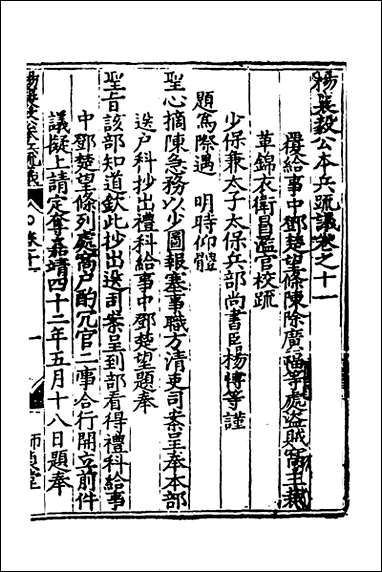 楊襄毅公本兵疏議卷之十一
覆給事中鄧楚望條陳除廣福等處盜賊窩主裁
革錦衣衛冒濫官校疏
少保兼太子太保兵部尚書臣楊博等謹
題爲際遇 明時仰體
聖心摘陳急務以少圖報塞事職方清吏司案呈奉本部
送戶科抄出禮科給事中鄧楚望題奉
聖旨該部知道欽此抄出送司案呈到部看得禮科給事
中鄧楚望條列處窩戶酌冗官二事合行開立前件
議擬上請定奪嘉靖四十二年五月十八日題奉
楊襄毅公本兵疏議
卷十一
一
師貞堂